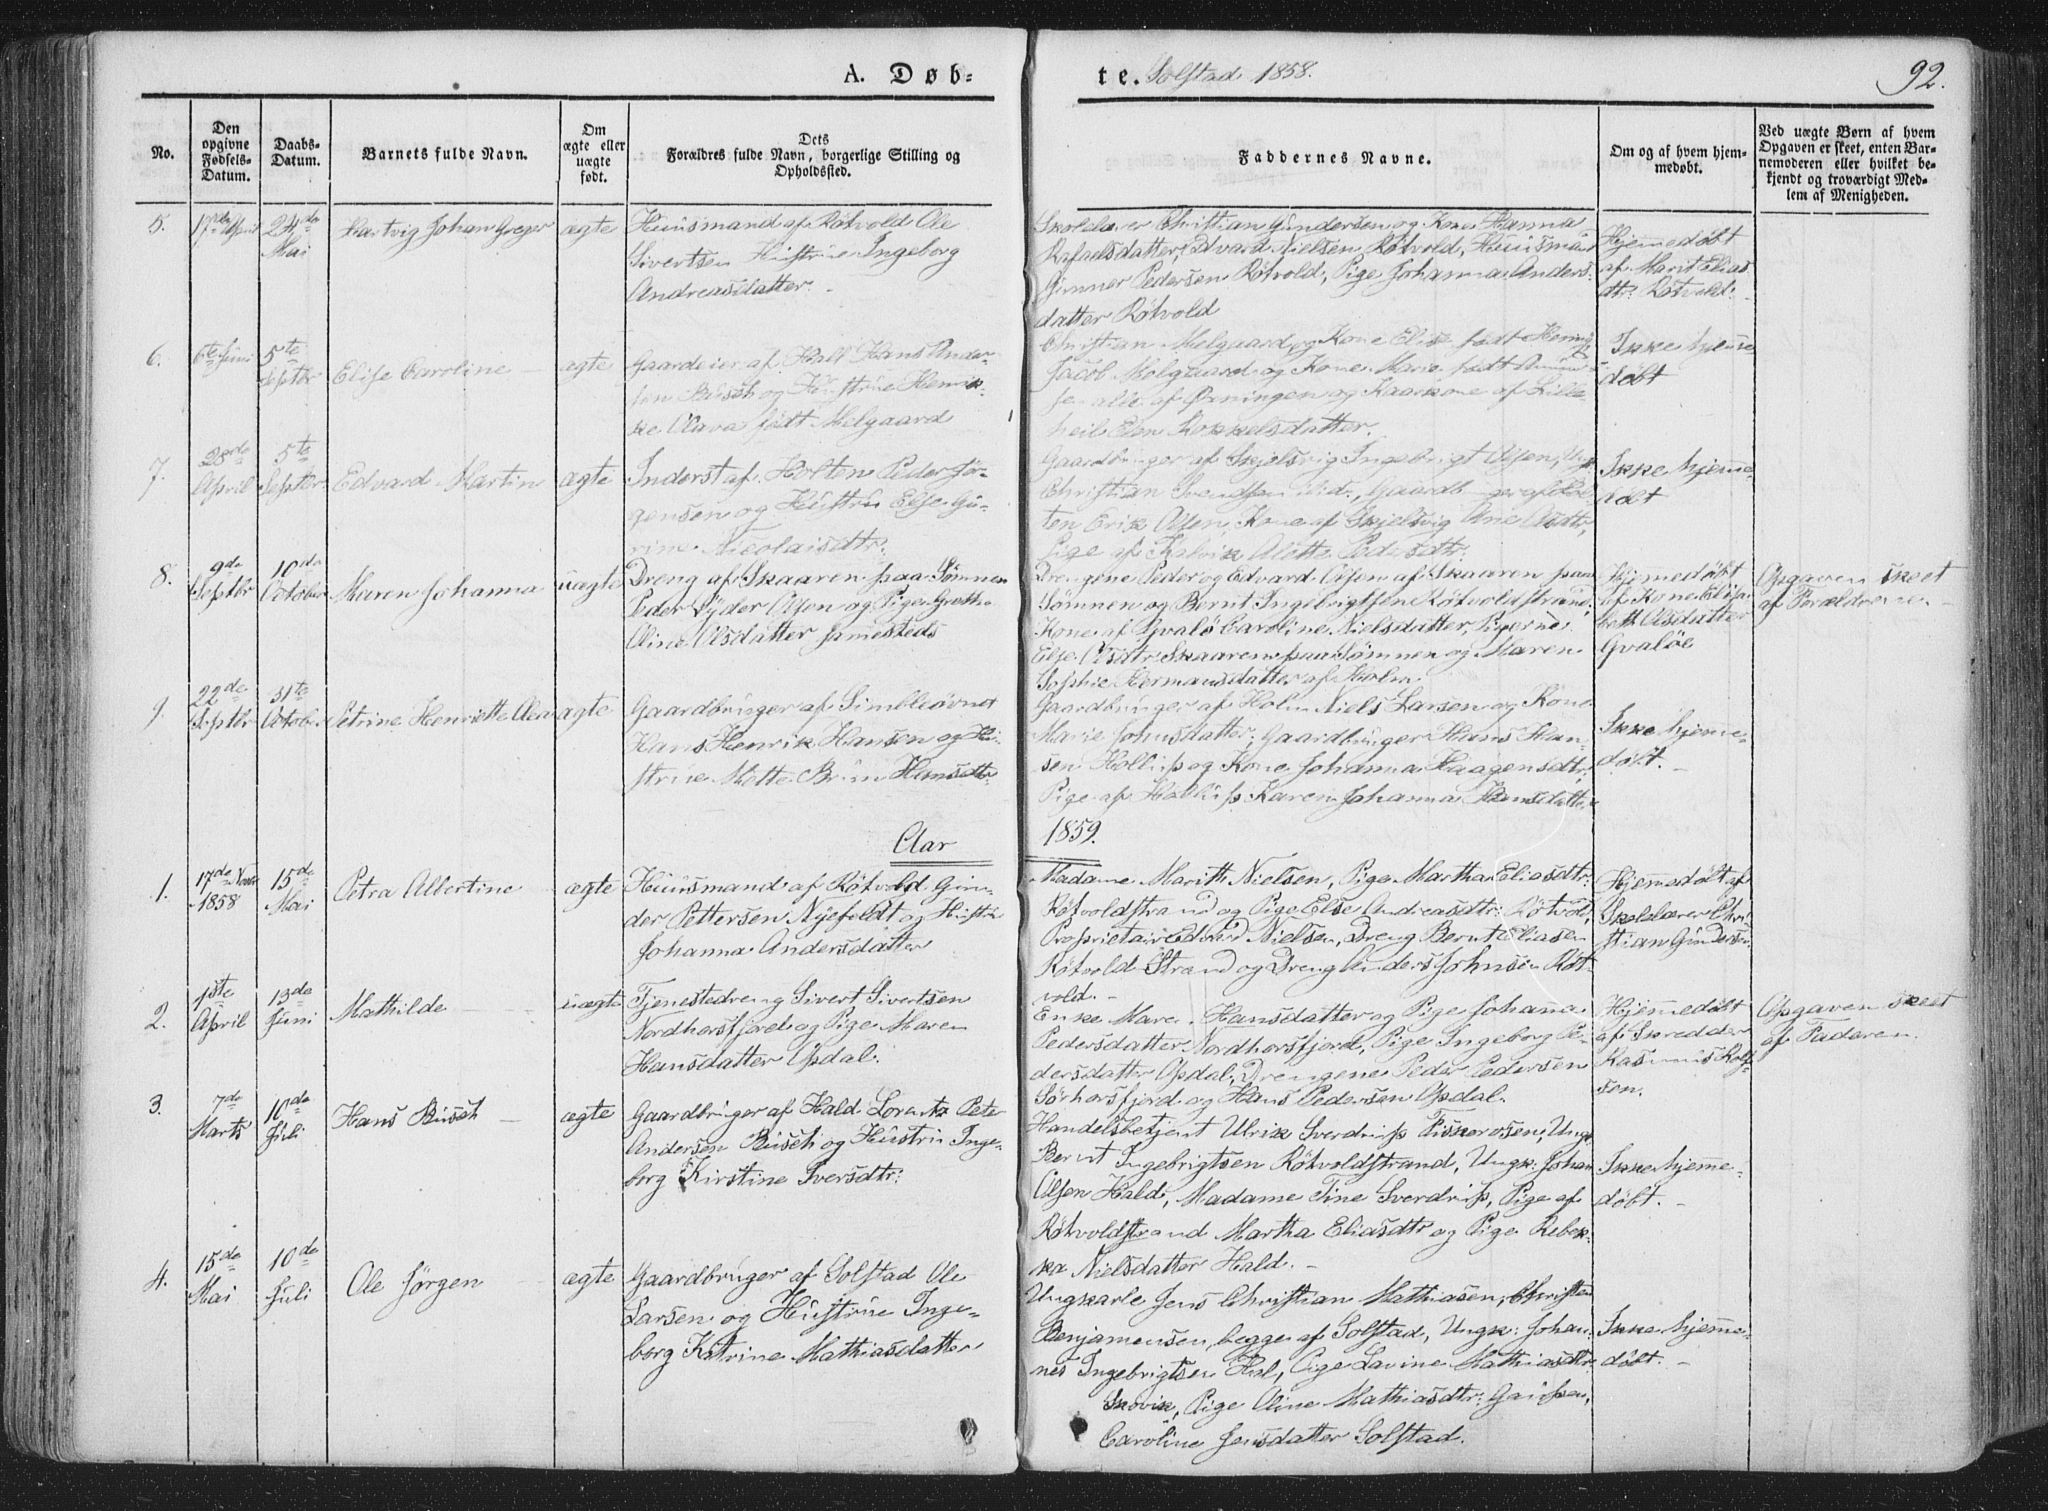 A. Døb-
te. Solstad 1858.
92.
No.
Den opgivne Fødsels-Datum.
Daabs-Datum.
Barnets fulde Navn.
Om ægte eller uægte født.
Dets Forældres fulde Navn, borgerlige Stilling og Opholdssted.
Faddernes Navne.
Om og af hvem hjemmedøbt.
Ved uægte Børn af hvem Opgaven er skeet, enten Barnemoderen eller hvilket bekjendt og troværdigt Medlem af Menigheden.
5.
17de April
24de Mai
Hartvig Johan Greger
ægte
Huusmand af Røtvold Ole
Sivertsen Hustrue Ingeborg
Andreasdatter.
Skolelærer Christian Gundersen og Kone Hanna
Rafaelsdatter, Edvard Nielsen Røtvold, Huusmand
Gunner Pedersen Røtvold, Pige Johanna Anders-
datter Røtvold
Hjemmedøbt
af Marit Elias
dtr: Røtvold.
6.
6te Juni
5te Septbr
Elise Caroline
ægte
Gaardeier af Hald Hans Ander-
sen Busch og Hustrue Henrik-
ke Olava født Melgaard
Christian Melgaard og Kone Elise født
Jacob Melgaard og Kone Marie født
alle af Ørningen og Kaarkone af Lille
heil Elen Kokkelsdatter.
Ikke hjemme
døbt
7.
28de April
5te Septbr
Edvard Martin
ægte
Inderst af Holten Peder Jør-
gensen og Hustru Else Gu-
rine Nicolaisdtr.
Gaardbruger af Skjelsvig Ingebrigt Olsen, Ungk
Christian Svendsen ibid., Gaardbruger af Hol-
ten Erik Olsen, Kone af Skjelsvig Ane Olsdtr,
Pige af Kalvik Alette Pedersdtr:
Ikke hjemme
døbt
8.
9de Septbr
10de October
Maren Johanna
uægte
Dreng af Skaaren paa Sømnen
Peder Ryder Olsen og Pige Grethe
Oline Olsdatter samesteds
Drengene Peder og Edvard Olsen af Skaaren paa
Sømnen og Bernt Ingebrigtsen Røtvoldstrand,
Kone af Gvalø Caroline Nielsdatter, Pigerne
Else Olsdtr Skaaren paa Sømnen og Maren
Sophie Hermansdatter af Holm.
Hjemmedøbt
af Kone Elisa-
beth Olsdatter
Gvaløe
Opgaven skeet
af Forældrene.
9.
22de Septbr
31te October
Petrine Henriette Olea
ægte
Gaardbruger af Simbleøvnet
Hans Henrik Hansen og Hu-
strue Mette Brun Hansdtr.
Gaardbruger af Holm Niels Larsen og Kone
Marie Johnsdatter, Gaardbruger Hans Han-
sen Hollup og Kone Johanna Haagensdtr,
Pige af Hollup Karen Johanna Hansdatter
Ikke hjemme-
døbt.
Aar
1859.
1.
17de Novbr 1858
15de Mai
Petra Albertine
ægte
Huusmand af Røtvold Gun-
der Pettersen Nyefeldt og Hustru
Johanna Andersdatter
Madame Marith Nielsen, Pige Martha Eliasdtr:
Røtvoldstrand og Pige Else Andreasdtr: Røtvold,
Proprietair Edvard Nielsen, Dreng Bernt Eliasen
Røtvold Strand og Dreng Anders Johnsen Røt-
vold.
Hjemmedøbt af
Skolelærer Chri-
stian Gundersen
2.
1ste April
13de Juni
Mathilde
uægte
Tjenestedreng Sivert Sivertsen
Nordhorsfjord og Pige Maren
Hansdatter Opdal.
Enke Mare Hansdatter og Pige Johanna
Pedersdatter Nordhorsfjord, Pige Ingeborg Pe-
dersdatter Opdal, Drengene Peder Pedersen
Sørhorsfjord og Hans Pedersen Opdal.
Hjemmedøbt
af Skredder
Rasmus Rolf-
sen.
Opgaven skeet
af Faderen.
3.
7de Marts
10de Juli
Hans Busch
ægte
Gaardbruger af Hald Lorentz Peter
Andersen Busch og Hustru Inge-
borg Kirstine Iversdtr:
Handelsbetjent Ulrik Sverdrup Fiskerosen, Ungk
Bernt Ingebrigtsen Røtvoldstrand, Ungk: Johan
Olsen Hald, Madame Tine Sverdrup, Pige af
Røtvoldstrand Martha Eliasdtr og Pige Rebek-
ka Nielsdatter Hald.
Ikke hjemme-
døbt.
4.
15de Mai
10de Juli
Ole Jørgen
ægte
Gaardbruger af Solstad Ole
Larsen og Hustrue Inge-
borg Katrine Mathiasdatter
Ungkarle Jens Christian Mathiasen, Christen
Benjamensen, begge af Solstad, Ungk: Johan-
nes Ingebrigtsen Hul, Pige Lavine Mathiasdtr
Skovik, Pige Oline Mathiasdtr:
Caroline Jensdatter Solstad.
Ikke hjemme-
døbt.